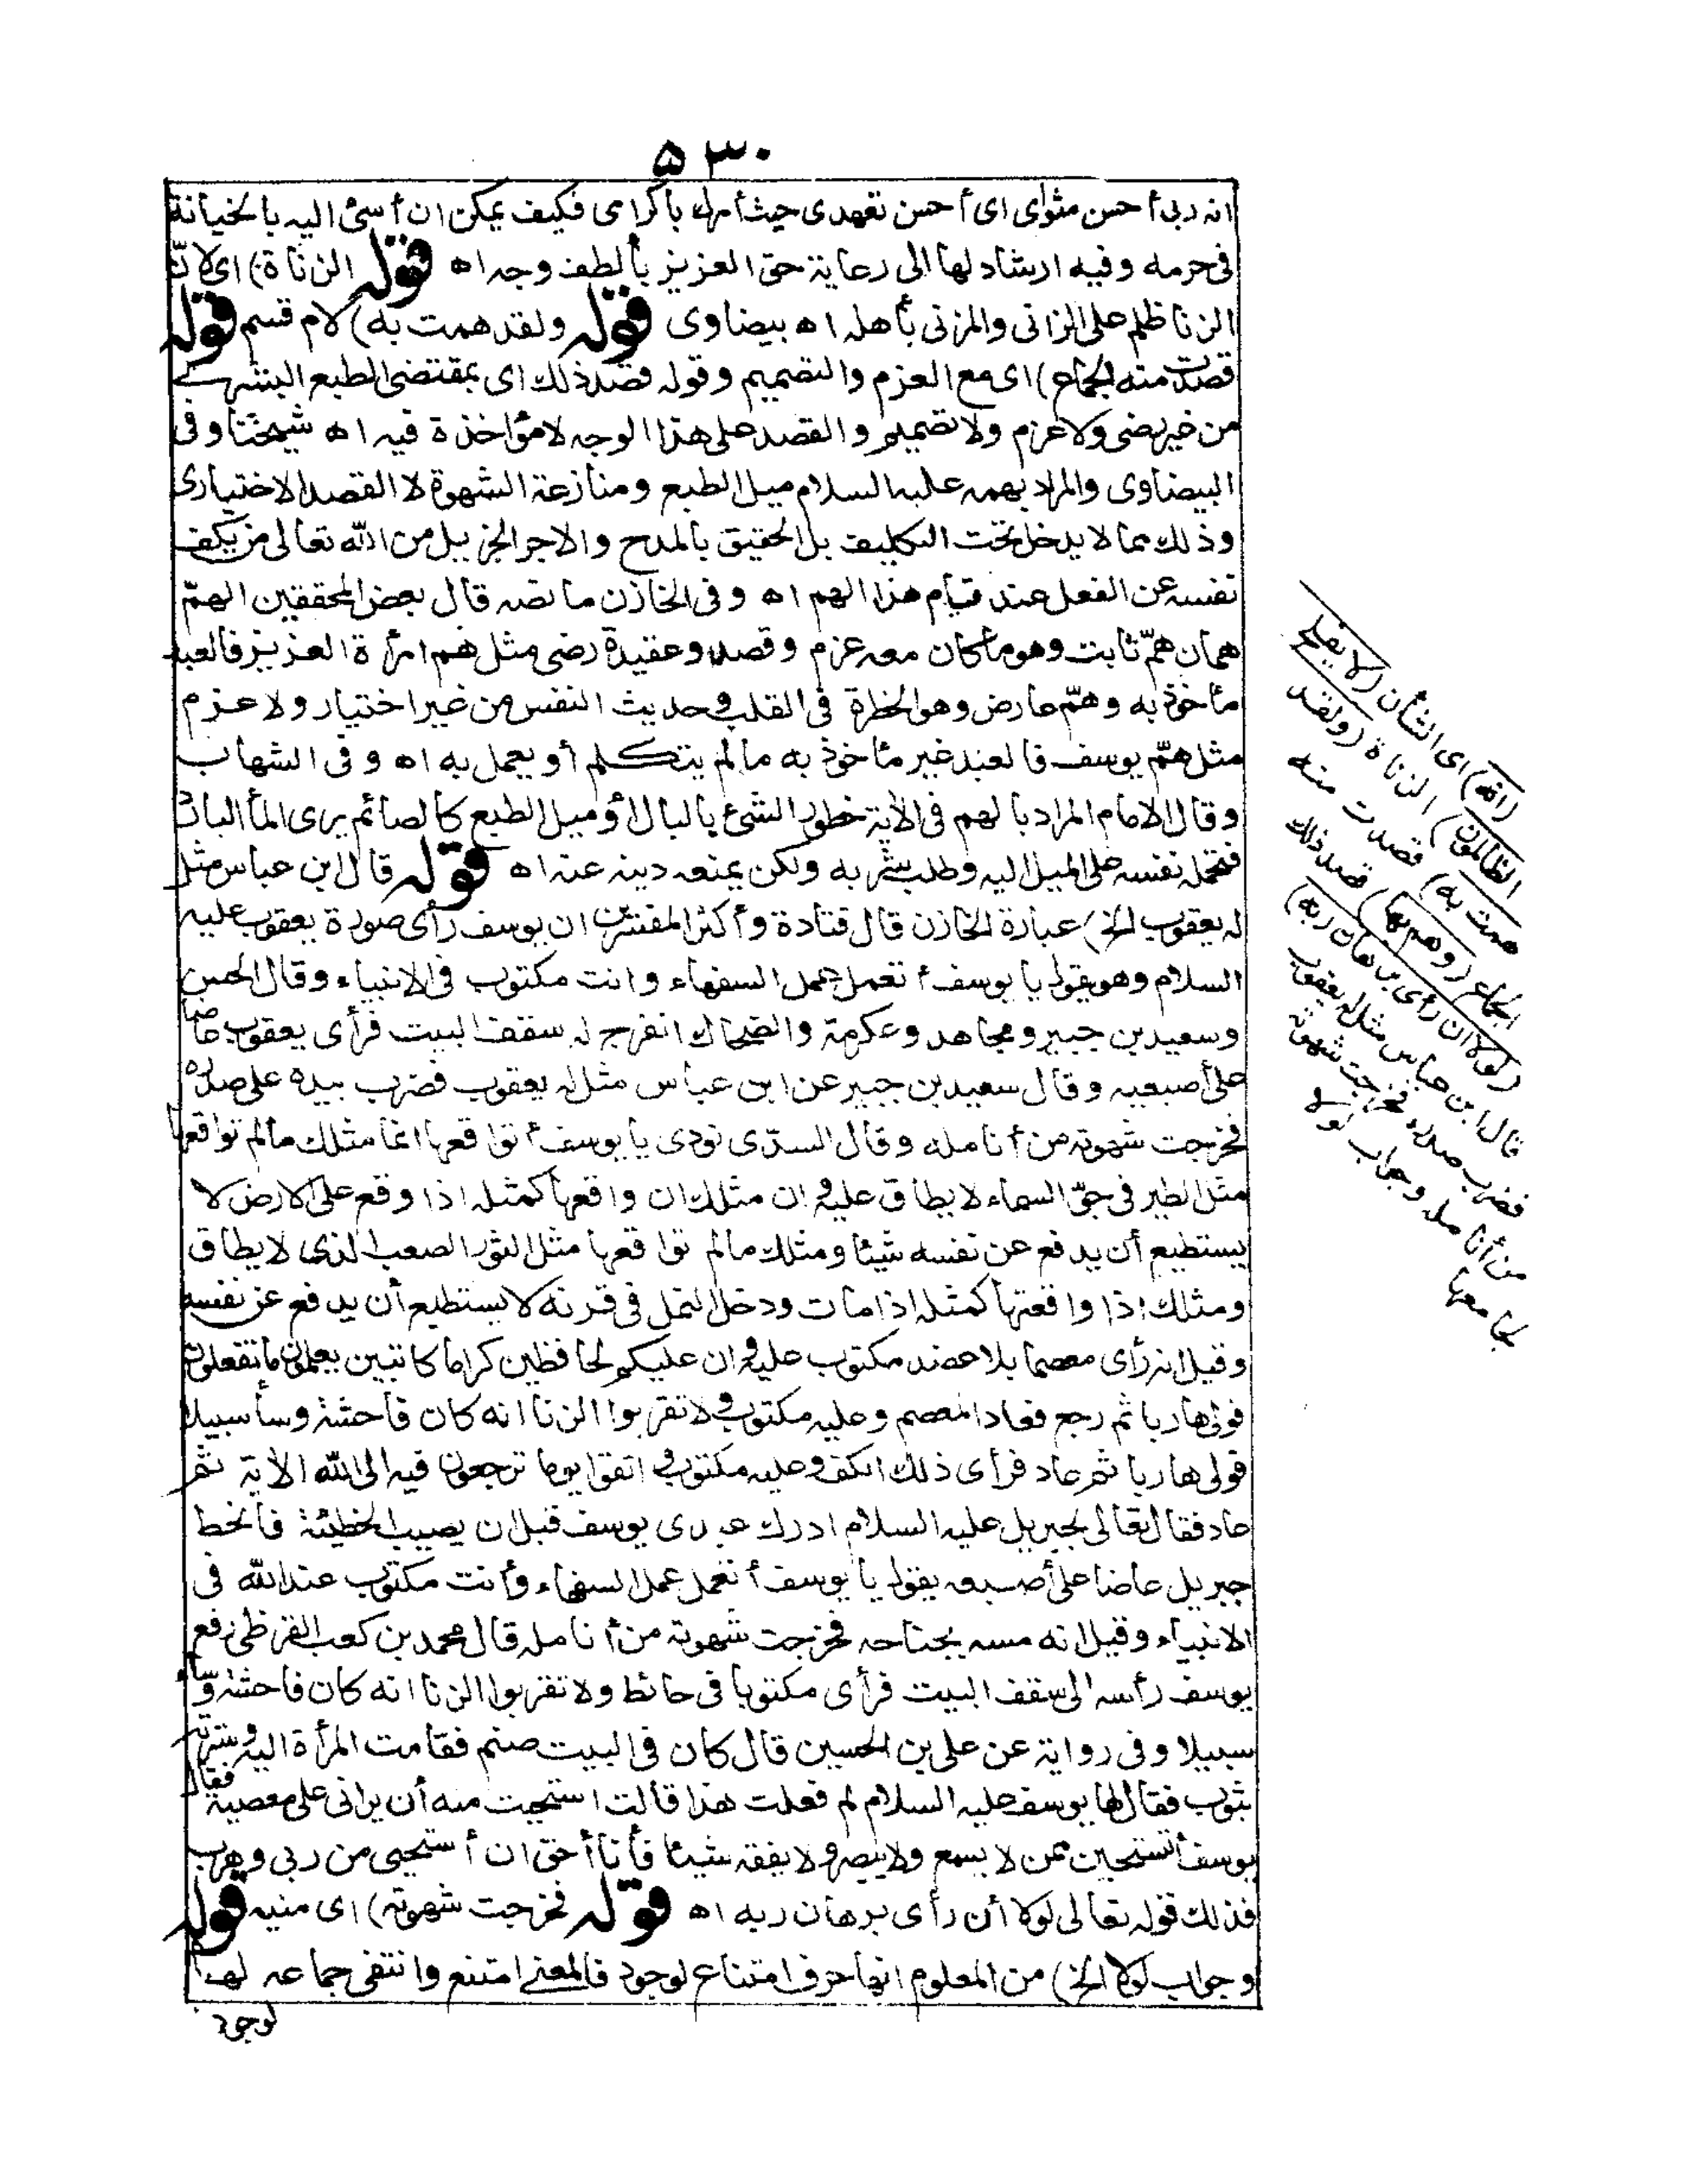 ٥٣٠
انه ربى أحسن مثواى اى أحسن تعهدى حيث أمرك بأكرامى فكيف يمكن ان أسئ اليه بالخيانة
فى حرمه وفيه ارشاد لها الى رعاية حق العزيز بألطف وجه اه قوله الزناة) اى لان
الزنا ظلم على الزانى والمزنى بأهله اه بيضاوى قوله ولقد همت به) لام قسم قوله
قصدت منه الجماع) اى مع العزم والتصميم وقوله قصد ذلك اى بمقتضى الطبع البشرى
من غير رضى ولا عزم ولا تصميم والقصد على هذا الوجه لا مؤاخذة فيه اه شيخنا وفى
البيضاوى والمراد بهمه عليه السلام ميل الطبع ومنازعة الشهوة لا القصد الاختيارى
وذلك مما لا يدخل تحت التكليف بل الحقيق بالمدح والاجر الجزيل من الله تعالى من يكف
نفسه عن الفعل عند قيام هذا الهم اه وفى الخازن ما نصه قال بعض المحققين الهمّ
همان همّ ثابت وهو ما كان معه عزم وقصد وعقيدة رضى مثل هم امرأة العزيز فالعبد
مأخوذ به وهمّ عارض وهو الخطرة فى القلب وحديث النفس من غير اختيار ولا عزم
مثل همّ يوسف فالعبد غير مأخوذ به ما لم يتكلم أو يعمل به اه وفى الشهاب
وقال الامام المراد بالهم فى الآية خطور الشئ بالبال أو ميل الطبع كالصائم يرى المأ البارد
فتحمله نفسه على الميل اليه وطلب شربه ولكن يمنعه دينه عنه اه قوله قال ابن عباس مثل
له يعقوب الخ) عبارة الخازن قال قتادة وأكثر المفسرين ان يوسف رأى صورة يعقوب عليه
السلام وهو يقول يا يوسف أتعمل عمل السفهاء وانت مكتوب فى الانبياء وقال الحسن
وسعيد بن جبير ومجاهد وعكرمة والضحاك انفرج له سقف البيت فرأى يعقوب عاضا
على أصبعيه وقال سعيد بن جبير عن ابن عباس مثل له يعقوب فضرب بيده على صدره
فخرجت شهوته من أنامله وقال السدّى نودى يا يوسف أتواقعها انما مثلك ما لم تواقعها
مثل الطير فى جوّ السماء لا يطاق عليه وان مثلك ان واقعها كمثله اذا وقع على الارض لا
يستطيع أن يدفع عن نفسه شيئا ومثلك ما لم تواقعها مثل الثور الصعب الذى لا يطاق
ومثلك اذا واقعتها كمثله اذا مات ودخل النمل فى قرنه لا يستطيع أن يدفع عن نفسه
وقيل انه رأى معصما بلا عضد مكتوب عليه وان عليكم لحافظين كراما كاتبين يعلمون ما تفعلون
فولى هاربا ثم رجع فعاد المعصم وعليه مكتوب ولا تقربوا الزنا انه كان فاحشة وسأ سبيلا
فولى هاربا ثم عاد فرأى ذلك الكف وعليه مكتوب واتقوا يوما ترجعون فيه الى الله الآية ثم
عاد فقال تعالى لجبريل عليه السلام ادرك عبدى يوسف قبل ان يصيب الخطيئة فانحط
جبريل عاضا على أصبعه يقول يا يوسف أتعمل عمل السفهاء وأنت مكتوب عند الله فى
الانبياء وقيل انه مسه بجناحه فخرجت شهوته من أنامله قال محمد بن كعب القرظى رفع
يوسف رأسه الى سقف البيت فرأى مكتوبا فى حائط ولا تقربوا الزنا انه كان فاحشة وسأ
سبيلا وفى رواية عن على بن الحسين قال كان فى البيت صنم فقامت المرأة اليه وسترته
بثوب فقال لها يوسف عليه السلام لم فعلت هذا قالت استحيت منه أن يرانى على معصية فقال
يوسف أتستحين ممن لا يسمع ولا يبصر ولا يفقه شيئا فأنا أحق ان أستحيى من ربى وهرب
فذلك قوله تعالى لولا أن رأى برهان ربه اه قوله فخرجت شهوته) اى منيه قوله
وجواب لولا الخ) من المعلوم انها حرف امتناع لوجود فالمعنى امتنع وانتفى جماعه لها
لوجود
(انه) اى الشأن (لا يفلح
الظالمون) الزناة (ولقد
همت به) قصدت منه
الجماع (وهم بها) قصد ذلك
(لولا ان رأى برهان ربه)
قال ابن عباس مثل له يعقوب
فضرب صدره فخرجت شهوته
من أنامله وجواب لولا
لجامعها